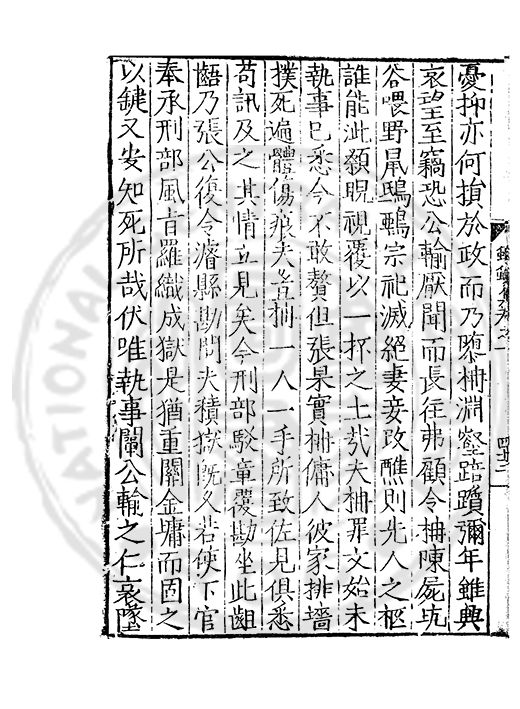 憂抑亦何損於政而乃墮柟淵壑踣躓彌年雖興
哀望至竊恐公輸厭聞而長往弗顧令柟陳屍坑
谷喂野鼠鴟鵶宗祀滅絕妻妾改醮則先人之柩
誰能泚顙睨視覆以一抔之土哉夫柟罪文始末
執事已悉今不敢贅但張杲實柟傭人彼家排墻
撲死遍體傷痕夫豈柟一人一手所致佐見俱悉
苟訊及之其情立見矣今刑部駁章覆勘坐此齟
齬乃張公復令濬縣勘問夫積獄既久若使下官
奉承刑部風旨羅織成獄是猶重關金墉而固之
以鍵又安知死所哉伏唯執事闡公輸之仁哀墜
NATIONAL